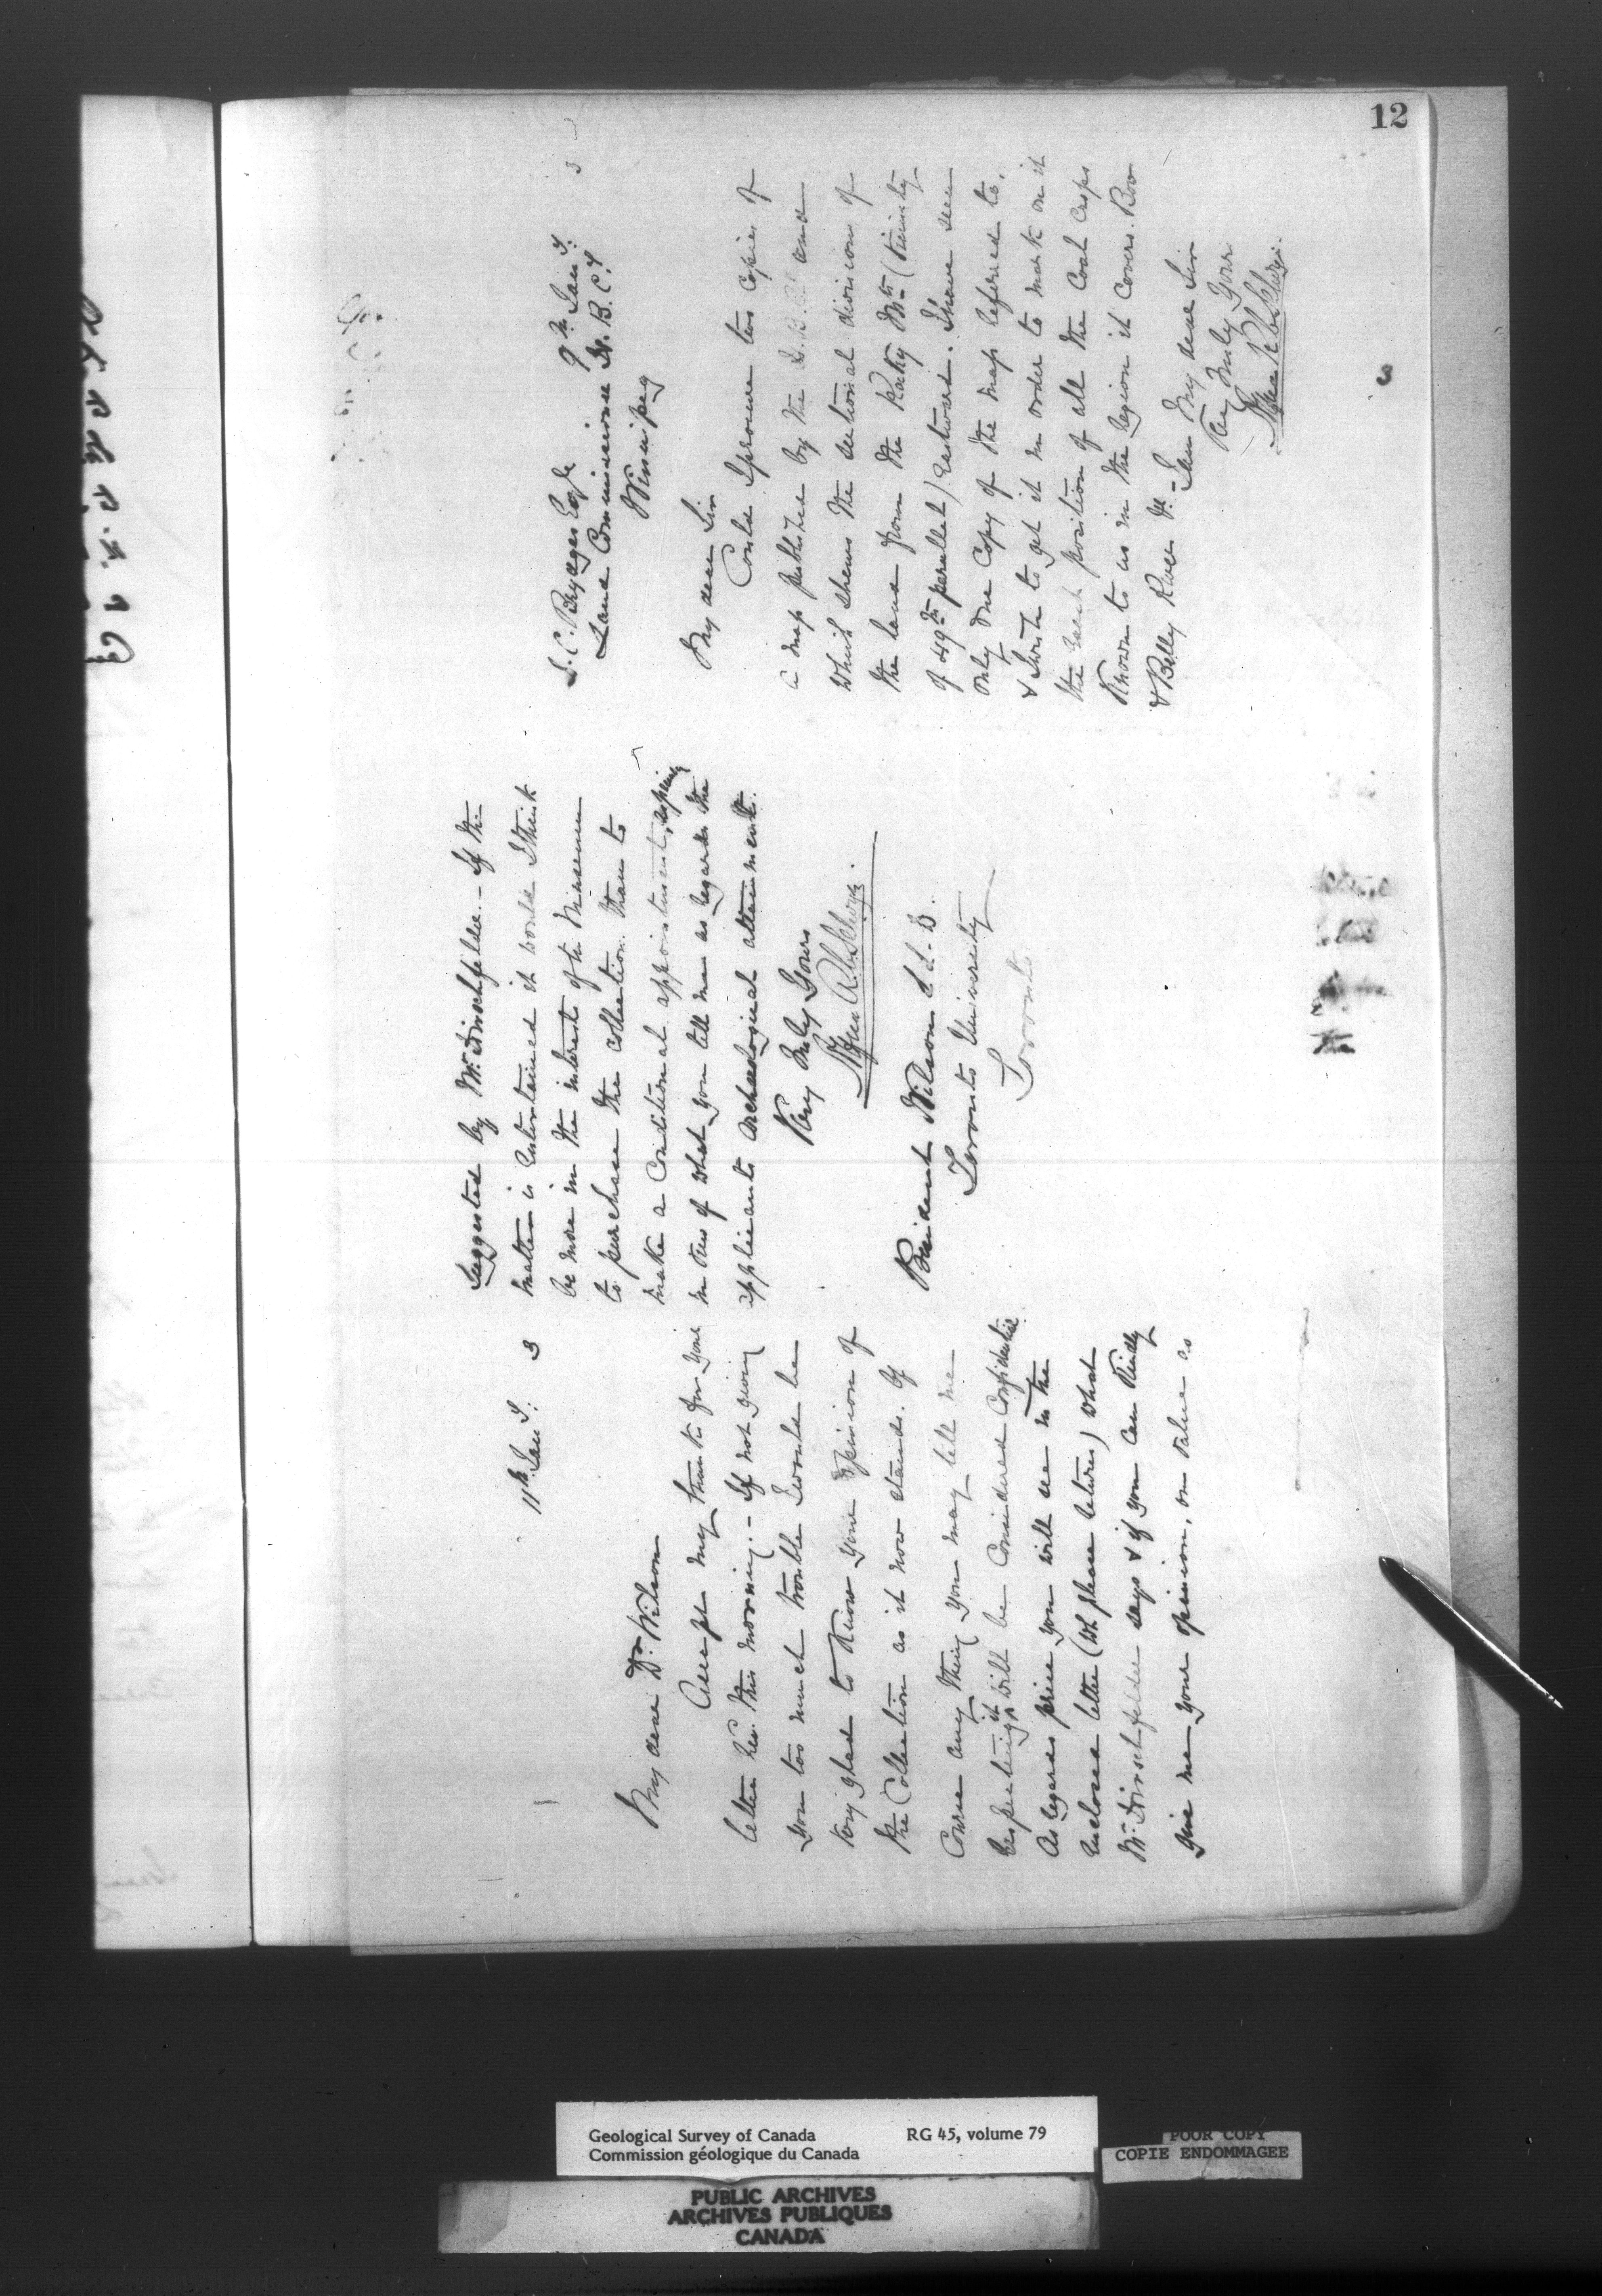 12
11th Jan y: 3
My dear Dr. Wilson
Accept my thanks for your
letter rec. this morning. - If not giving
you too much trouble I would be
very glad to know your opinion of
the Collection as it now stands. Of
Course any thing you may tell me
respecting it will be Considered Confidential
As regards price you will see in the
enclosed letter (wh please return) what
Mr. Hirschfelder says & if you can kindly
give me your opinion, on value as
suggested by Mr. Hirschfelder. - If the
matter is entertained it would I think
be more in the interests of the Museum
to purchase the collection than to
make a Conditional appointment, especially
in view of what you tell me as regards the
applicants Archaeological attainments.
Very truly Yours
Alfred R. C. Selwyn
President Wilson L.L.D.
Toronto University
Toronto
9th Jan y: 3
C. Brydges Esqr
Land Commissioner H. B. Cy
Winnipeg
My dear Sir
Could I procure two Copies of
a map published by the H. B. Cy and
which shews the sectional divisions of
the land from the Rocky Mts (vicinity
of 49th parallel) Eastward. I have seen
only one Copy of the map referred to,
& wish to get it in order to mark on it
the exact position of all the Coal Crops
known to us in the region it covers. Bow
& Belly River &c - I am My dear Sir
Very truly Yours
Alfred R C Selwyn
Geological Survey of Canada RG 45, volume 79
Commission géologique du Canada
POOR COPY
COPIE ENDOMMAGEE
PUBLIC ARCHIVES
ARCHIVES PUBLIQUES
CANADA